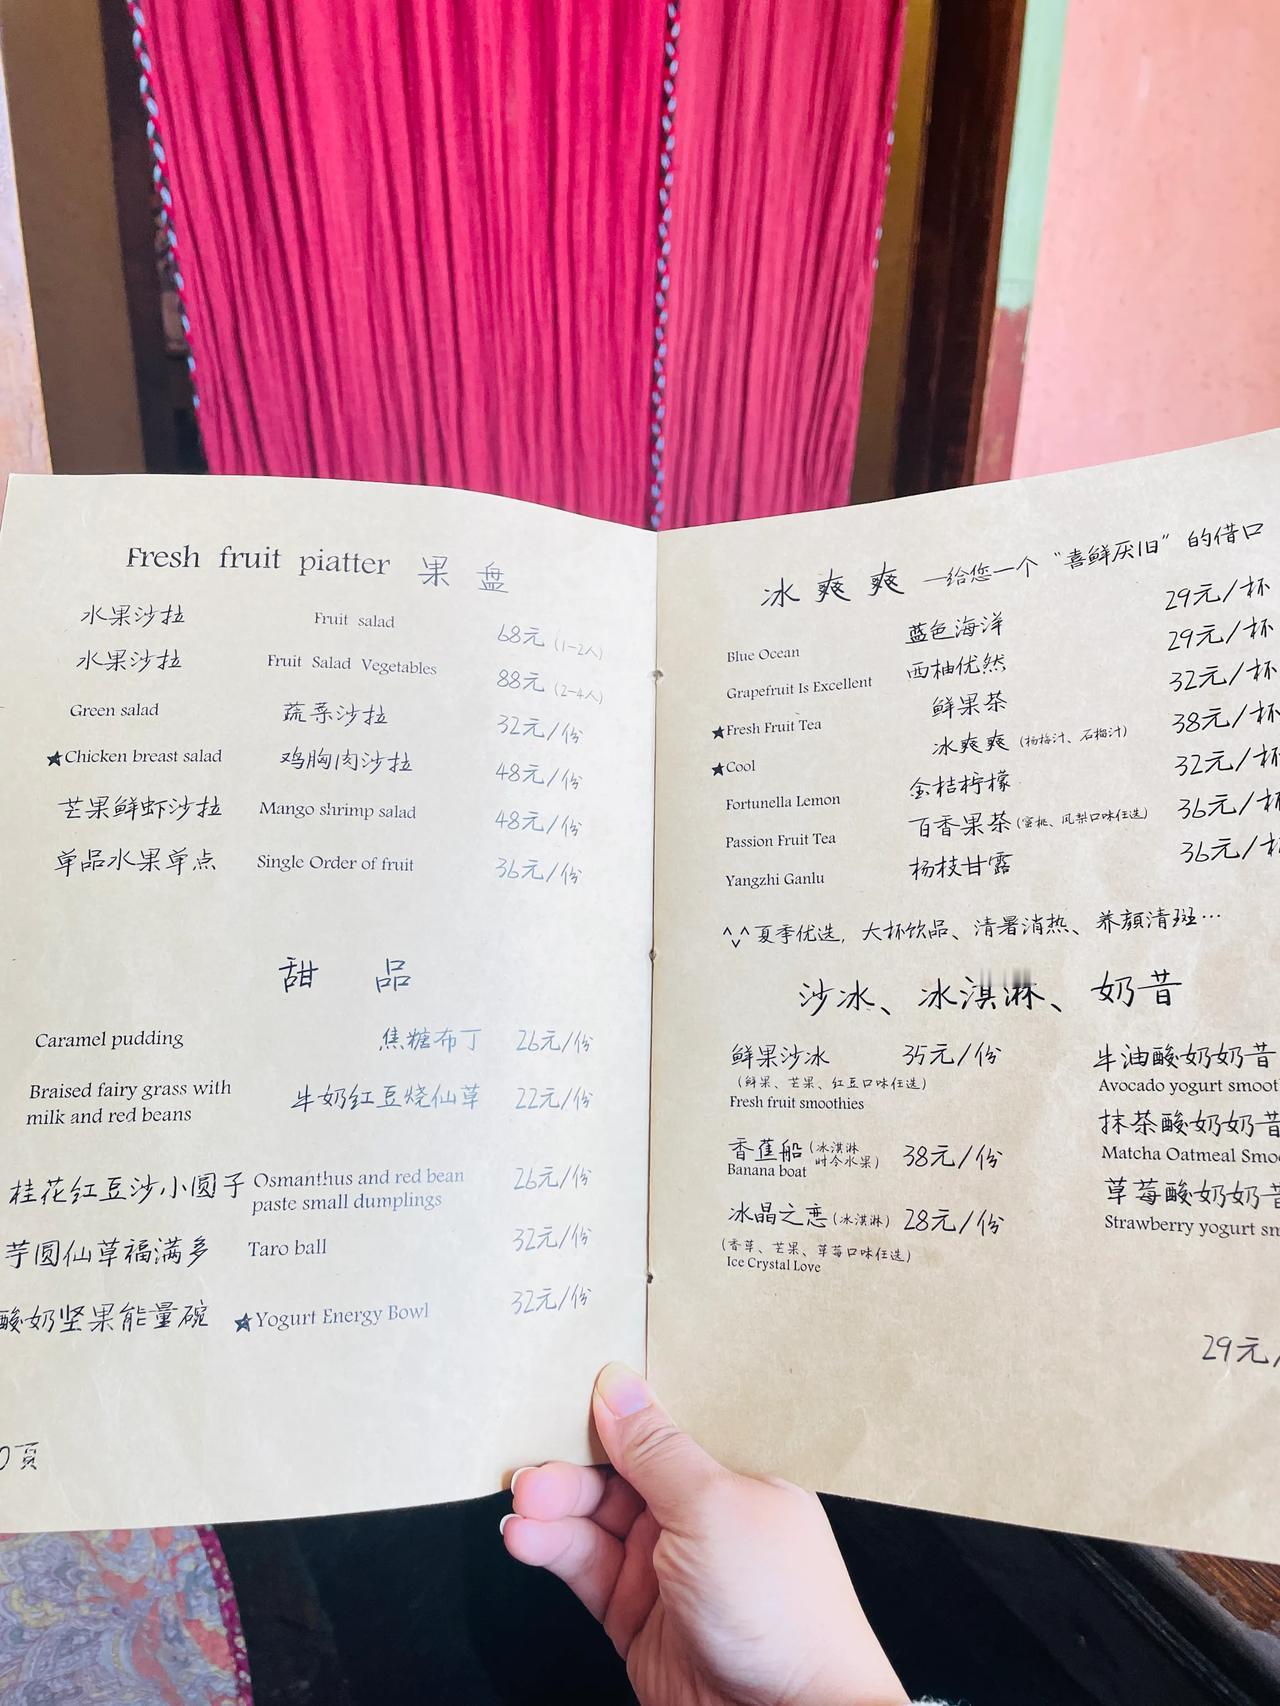 Fresh fruit piatter 果 盘
水果沙拉 Fruit salad 68元 (1-2人)
水果沙拉 Fruit Salad Vegetables 88元 (2-4人)
Green salad 蔬菜沙拉 32元/份
★Chicken breast salad 鸡胸肉沙拉 48元/份
芒果鲜虾沙拉 Mango shrimp salad 48元/份
单品水果单点 Single Order of fruit 36元/份
甜 品
Caramel pudding 焦糖布丁 26元/份
Braised fairy grass with
milk and red beans 牛奶红豆烧仙草 22元/份
桂花红豆沙小圆子 Osmanthus and red bean
paste small dumplings 26元/份
芋圆仙草福满多 Taro ball 32元/份
酸奶坚果能量碗 ★Yogurt Energy Bowl 32元/份
0页
冰爽爽 —给您一个“喜鲜厌旧”的借口
Blue Ocean 蓝色海洋 29元/杯
Grapefruit Is Excellent 西柚优然 29元/杯
★Fresh Fruit Tea 鲜果茶 32元/杯
★Cool 冰爽爽 (杨梅汁、石梅汁) 38元/杯
Fortunella Lemon 金桔柠檬 32元/杯
Passion Fruit Tea 百香果茶 (蜜桃、凤梨口味任选) 36元/杯
Yangzhi Ganlu 杨枝甘露 36元/杯
^v^夏季优选，大杯饮品、清暑消热、养颜清斑…
沙冰、冰淇淋、奶昔
鲜果沙冰 35元/份
(鲜果、芒果、红豆口味任选)
Fresh fruit smoothies
香蕉船 (冰淇淋 时令水果) 38元/份
Banana boat
冰晶之恋 (冰淇淋) 28元/份
(香草、芒果、草莓口味任选)
Ice Crystal Love
牛油酸奶奶昔
Avocado yogurt smoot
抹茶酸奶奶昔
Matcha Oatmeal Smo
草莓酸奶奶昔
Strawberry yogurt sm
29元/